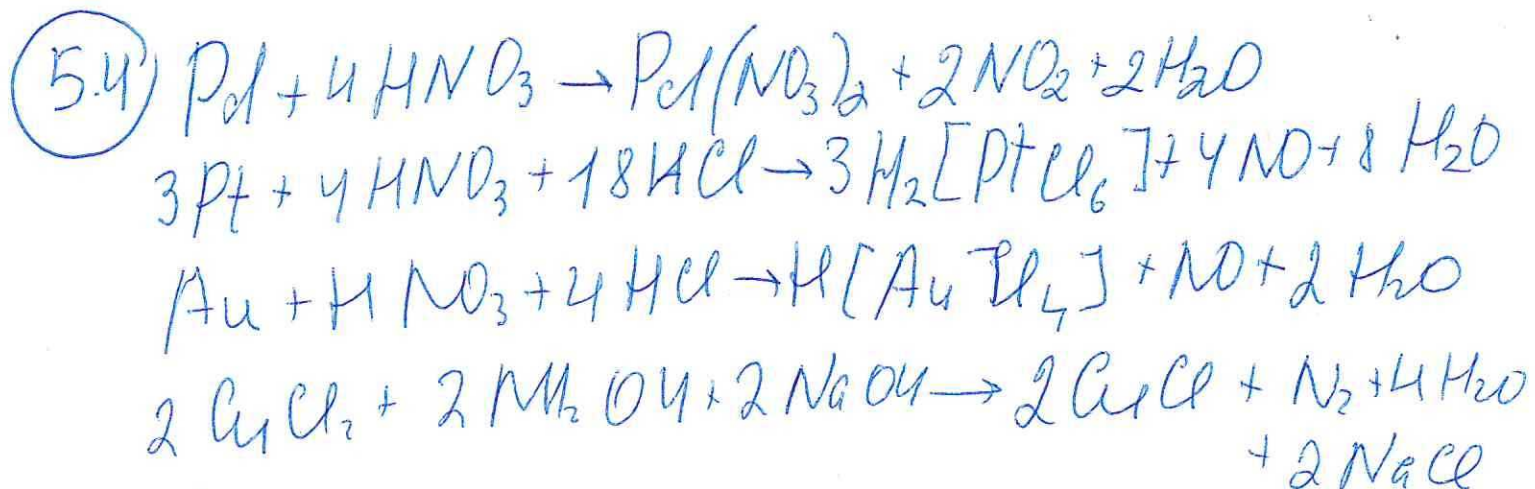 5.4) Pd + 4HNO₃ → Pd(NO₃)₂ + 2NO₂ + 2H₂O
3Pt + 4HNO₃ + 18HCl → 3H₂[PtCl₆] + 4NO + 8H₂O
Au + HNO₃ + 4HCl → H[AuCl₄] + NO + 2H₂O
2CuCl₂ + 2NH₂OH + 2NaOH → 2CuCl + N₂ + 4H₂O
+ 2NaCl